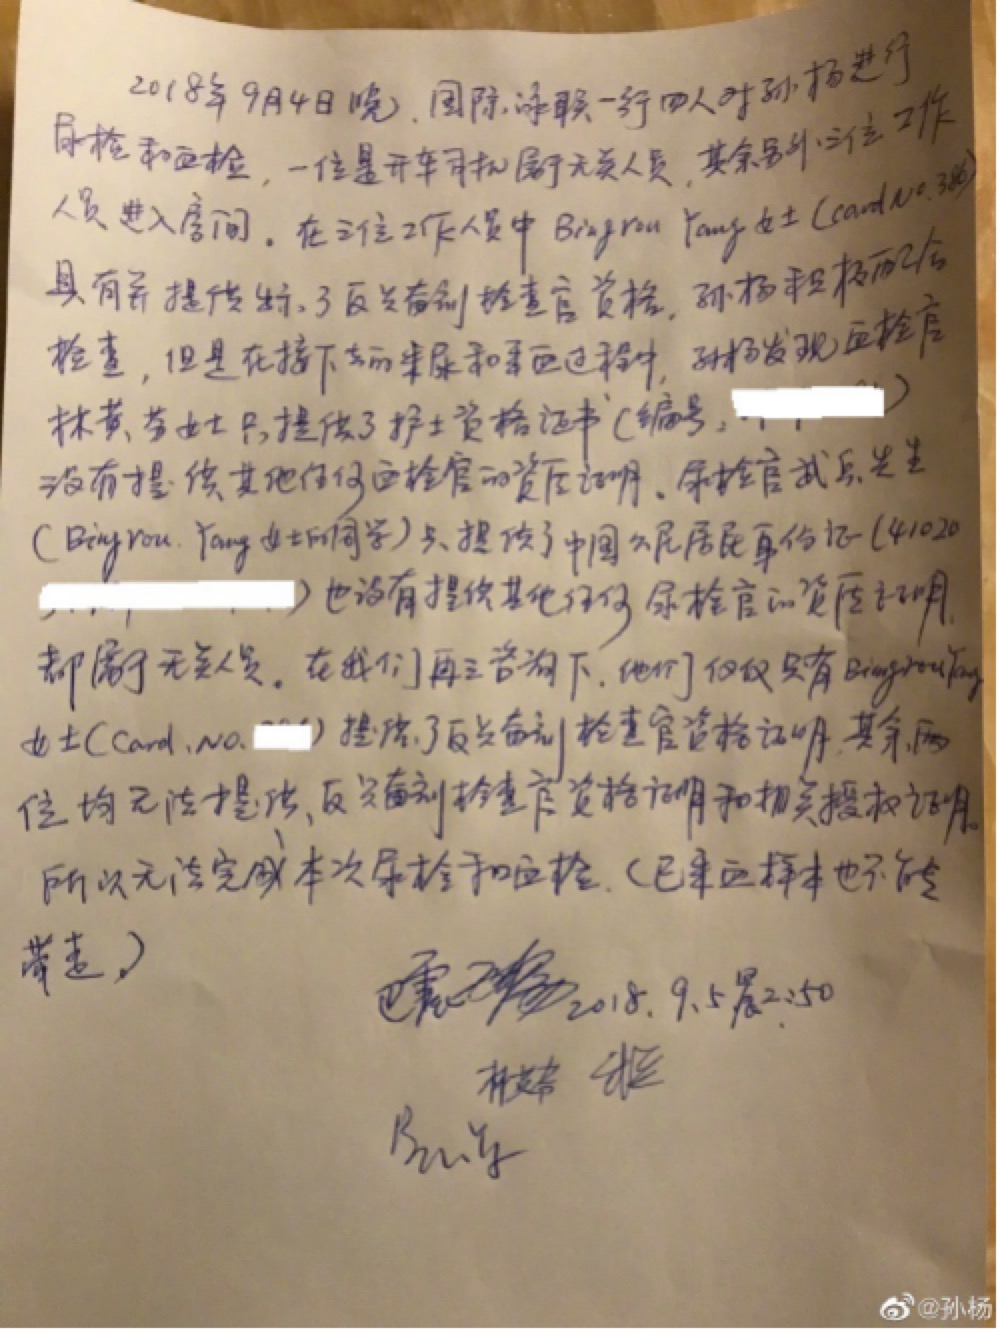 2018年9月4日晚，国际泳联一行四人对孙杨进行
尿检和血检，一位是开车司机属于无关人员，其余另外三位工作
人员进入房间。在三位工作人员中Bingrou Yang女士(card No.386)
具有并提供出示了反兴奋剂检查官资格，孙杨积极配合
检查，但是在接下去的采尿和采血过程中，孙杨发现血检官
林黄芬女士只提供了护士资格证书(编号:
没有提供其他任何血检官的资历证明。尿检官武兵先生
(Bingrou.Yang女士的同学)只提供了中国公民居民身份证(41020
)也没有提供其他任何尿检官的资历证明，
都属于无关人员。在我们再三咨询下，他们仅仅只有Bingrou Yang
女士(Card.No. )提供了反兴奋剂检查官资格证明，其余两
位均无法提供、反兴奋剂检查官资格证明和相关授权证明。
所以无法完成本次尿检和血检.(已采血样本也不能
带走。)
巴震 2018.9.5晨2:50
@孙杨